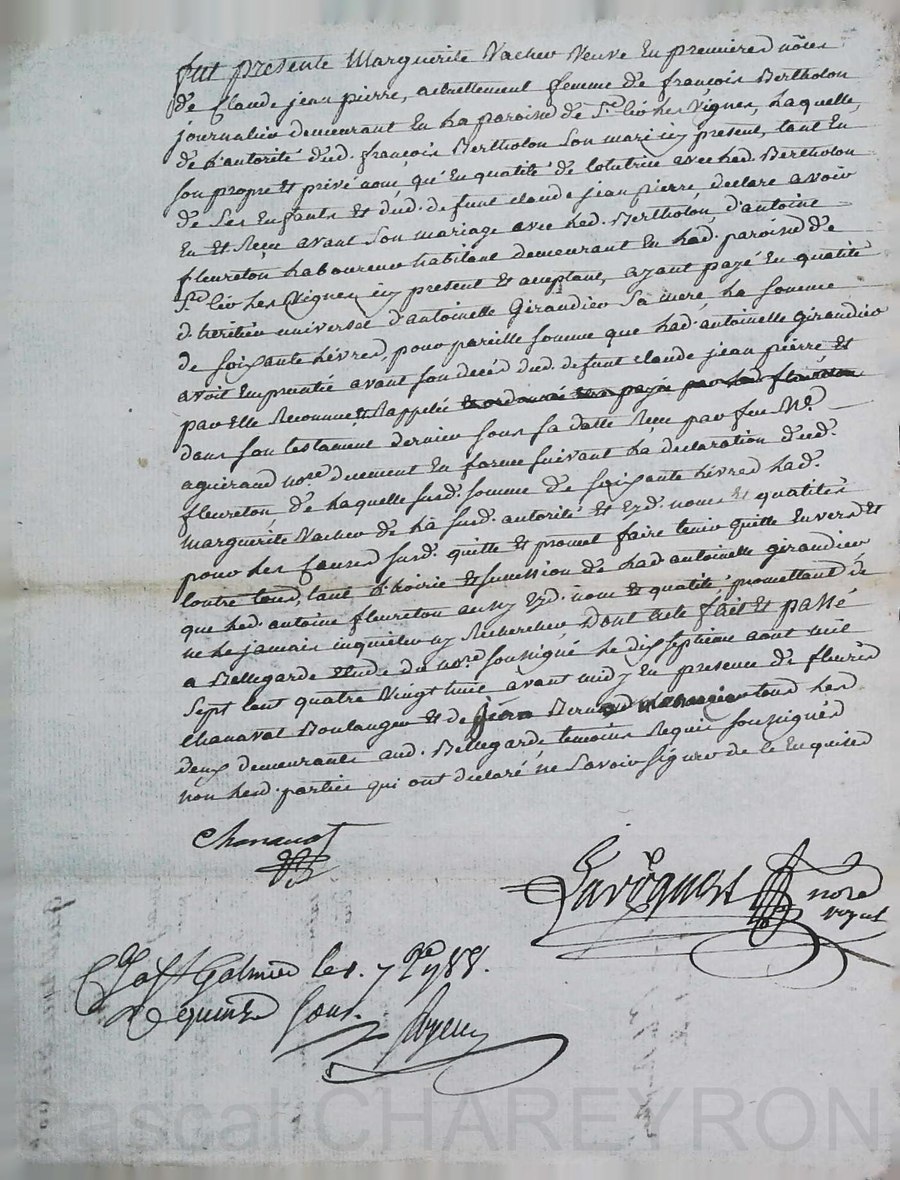 fut presente Marguerite Vacher Veuve En premieres nôces
de Claude jean pierre, actuellement femme de françois Bertholon
journalier demeurant En La paroisse de St. Cir les Vignes, Laquelle,
de L'autorité dud. françois Bertholon Son mari icy present, tant En
son propre et privé nom, qu'En qualité de tutrice avec Led. Bertholon
de Ses Enfants et dud. defunt claude jean pierre, declare avoir
Eu et Reçu avant Son mariage avec Led. Bertholon, d'antoine
fleureton Laboureur habitant demeurant En Lad. paroisse de
St. Cir Les Vignes icy present et acceptant, ayant payé En qualité
d'heritier universel d'antoinette Giraudier Sa mere, La Somme
de soixante Livres, pour pareille somme que Lad. antoinette giraudier
avoit Empruntée avant son decès dud. defunt claude jean pierre et
par Elle Reconnue et Rappelée
dans son testament dernier sous sa datte Reçu par feu Me.
aguiraud nore. duement En forme suivant La declaration dud.
fleureton de Laquelle susd. somme de soixante Livres Lad.
marguerite Vacher de La susd. autorité et Esd. noms et qualités
pour Les Causes susd. quitte et promet faire tenir quitte Envers et
Contre tous, tant L'hoirie et succession de Lad antoinette giraudier
que Led. antoine fleureton aussy Esd. nom et qualité, promettant de
ne Le jamais inquieter ny Rechercher Dont acte fait et passé
a Bellegarde Etude du nore soussigné Le dix septieme aout mil
sept Cent quatre Vingt huit avant midy En presence de fleuris
Chanavat Boulanger et de jean Bernard tous Les
deux demeurants aud. Bellegarde temoins Requis soussignés
non Lesd. parties qui ont declaré ne Savoir signer de Ce Enquises
Chanavat
nore
royal
Ca St Galmier le 1. 7bre 1788.
R quinze Sous.
Pascal CHAREYRON